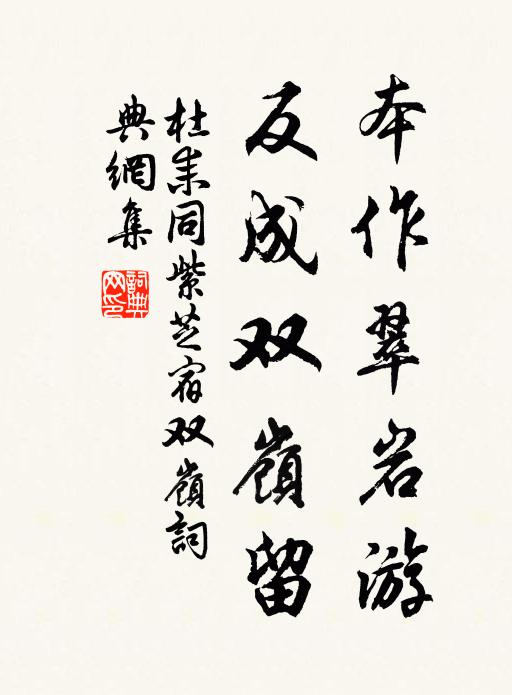 本作翠岩游
反成双嶺留
杜耒同紫芝宿双嶺詞
典網集
詞典网印